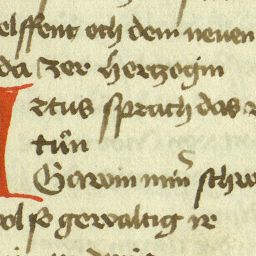 elffent och dem neuen
da zer herzogin
Irtus sprach das
tuͦn
Gawin min schw
wol so gewaltig ir